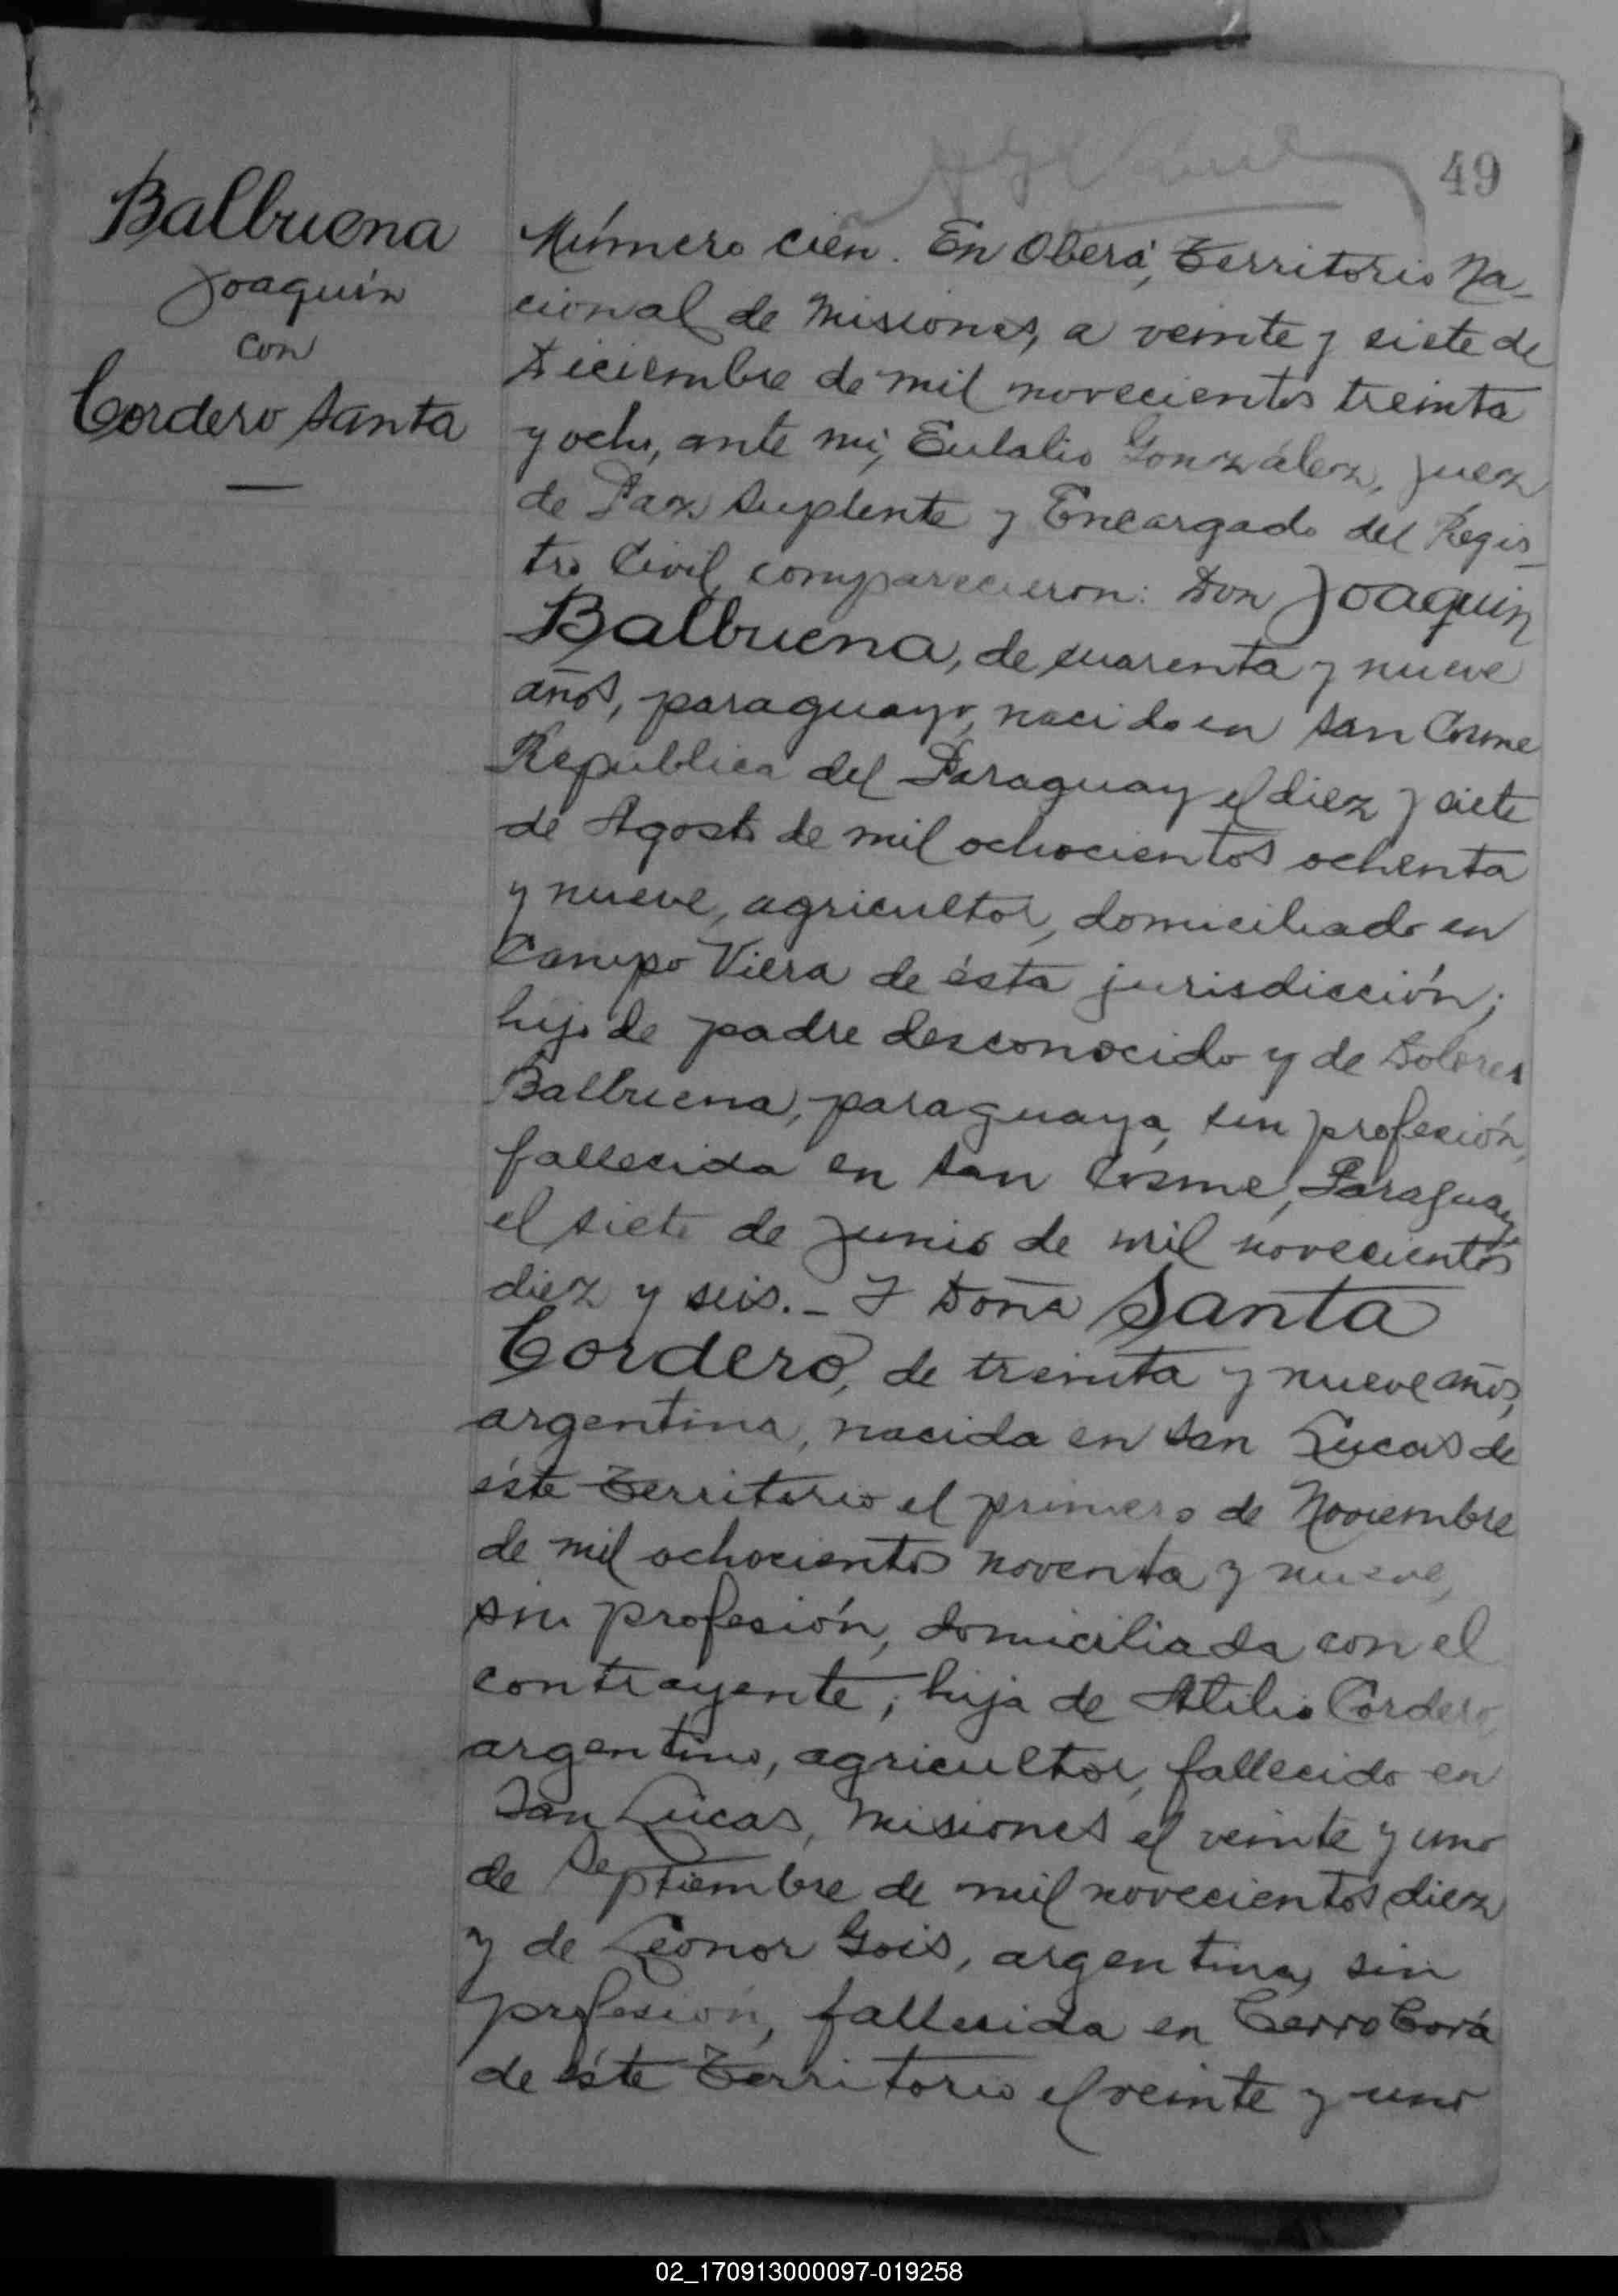 49
Balbuena
Joaquín
con
Cordero Santa
Número cien. En Oberá, Territorio Na-
cional de Misiones, a veinte y siete de
Diciembre de mil novecientos treinta
y ocho, ante mí, Eulalio González, Juez
de Paz Suplente y Encargado del Regis-
tro Civil comparecieron: Don Joaquín
Balbuena, de cuarenta y nueve
años, paraguayo, nacido en San Cosme
República del Paraguay el diez y siete
de Agosto de mil ochocientos ochenta
y nueve, agricultor, domiciliado en
Campo Viera de ésta jurisdicción;
hijo de padre desconocido y de Dolores
Balbuena, paraguaya, sin profesión,
fallecida en San Cosme, Paraguay
el siete de Junio de mil novecientos
diez y seis.- Y Doña Santa
Cordero, de treinta y nueve años,
argentina, nacida en San Lucas de
éste Territorio el primero de Noviembre
de mil ochocientos noventa y nueve,
sin profesión, domiciliada con el
contrayente; hija de Atilio Cordero,
argentino, agricultor, fallecido en
San Lucas, Misiones el veinte y uno
de Septiembre de mil novecientos diez
y de Leonor Gois, argentina, sin
profesión, fallecida en Cerro Corá
de éste Territorio el veinte y uno
02_170913000097-019258